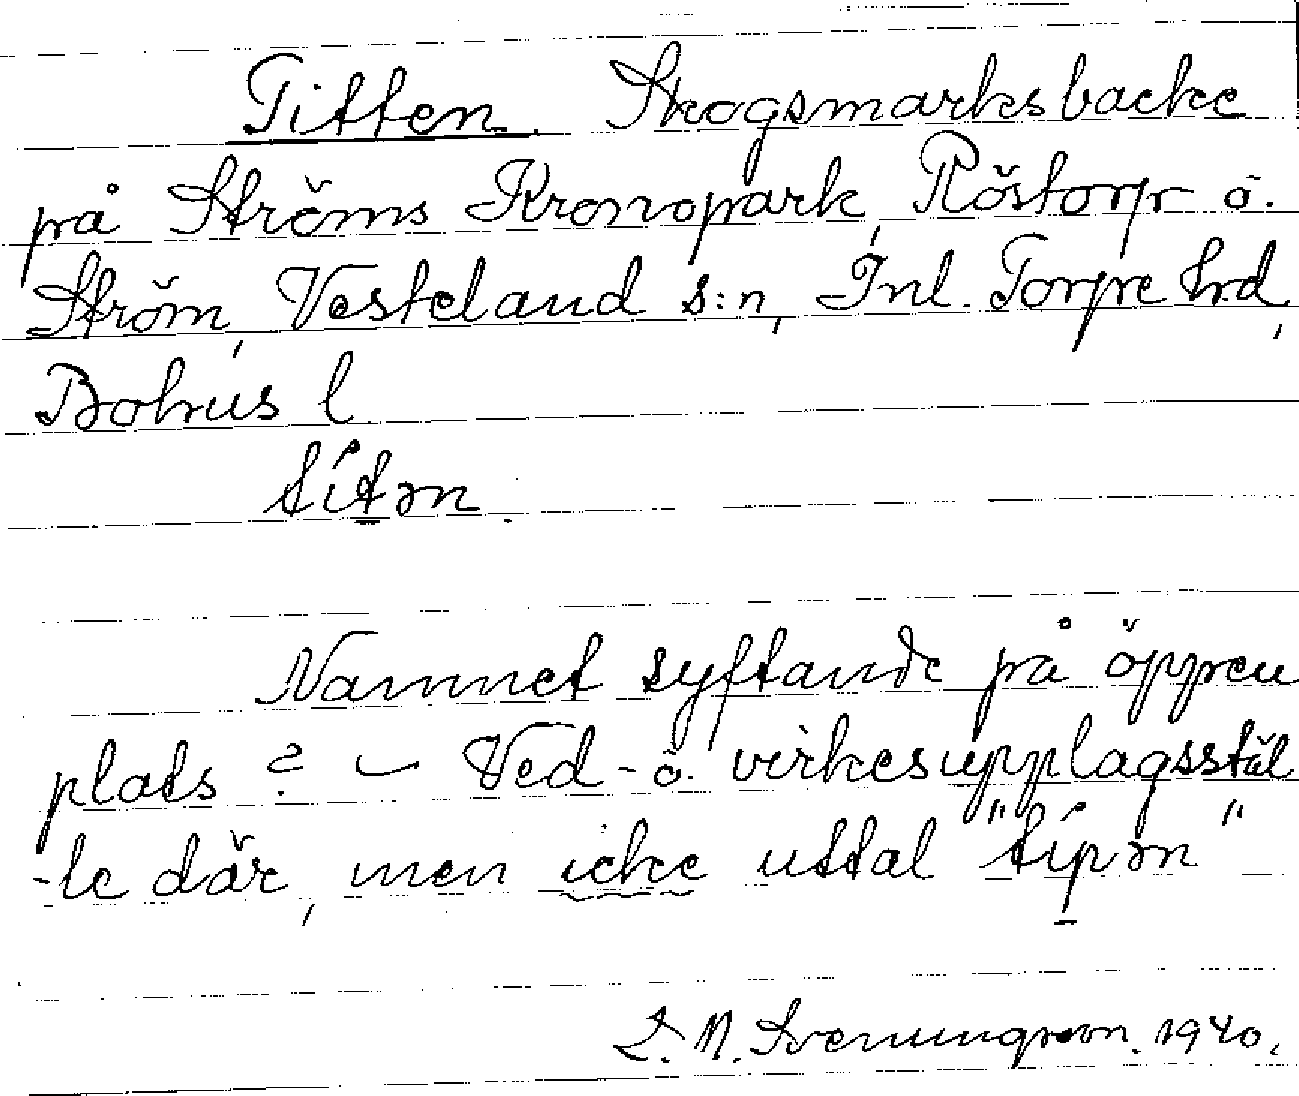 Titten. Skogsmarksbacke
på Ströms Kronopark, Röstorp o.
Ström, Vesteland s:n, Inl. Torpe hrd,
Bohus l
títən.
Namnet syftande på öppen
plats? – Ved- o. virkesupplagsstäl
-le där, men icke uttal "típən"
S. N. Svenungsson. 1940.